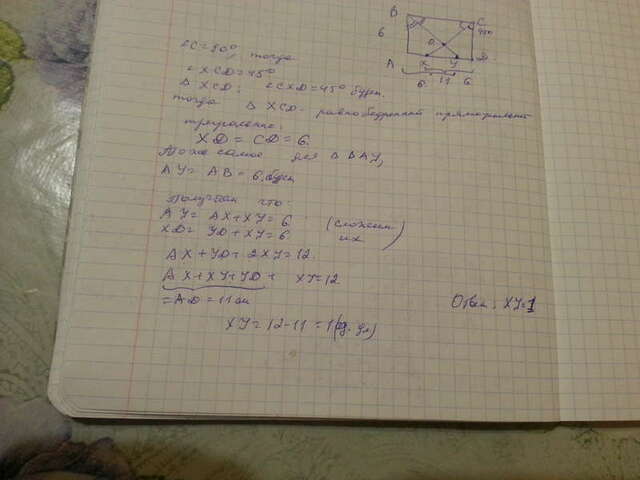 B
C
6
45°
O
A
X
Y
D
6
11
6
∠C=90°, тогда
∠XCD=45°
Δ XCD; ∠CXD=45° будет
тогда Δ XCD - равнобедренный прямоугольный
треугольник.
XD = CD = 6.
То же самое для Δ BAY,
AY = AB = 6. будет
Получаем что:
AY = AX+XY = 6
XD = YD+XY = 6
(сложим их)
AX + YD + 2XY = 12.
AX + XY + YD + XY = 12
= AD = 11 см
XY = 12-11 = 1 (ед. дл)
Ответ: XY=1